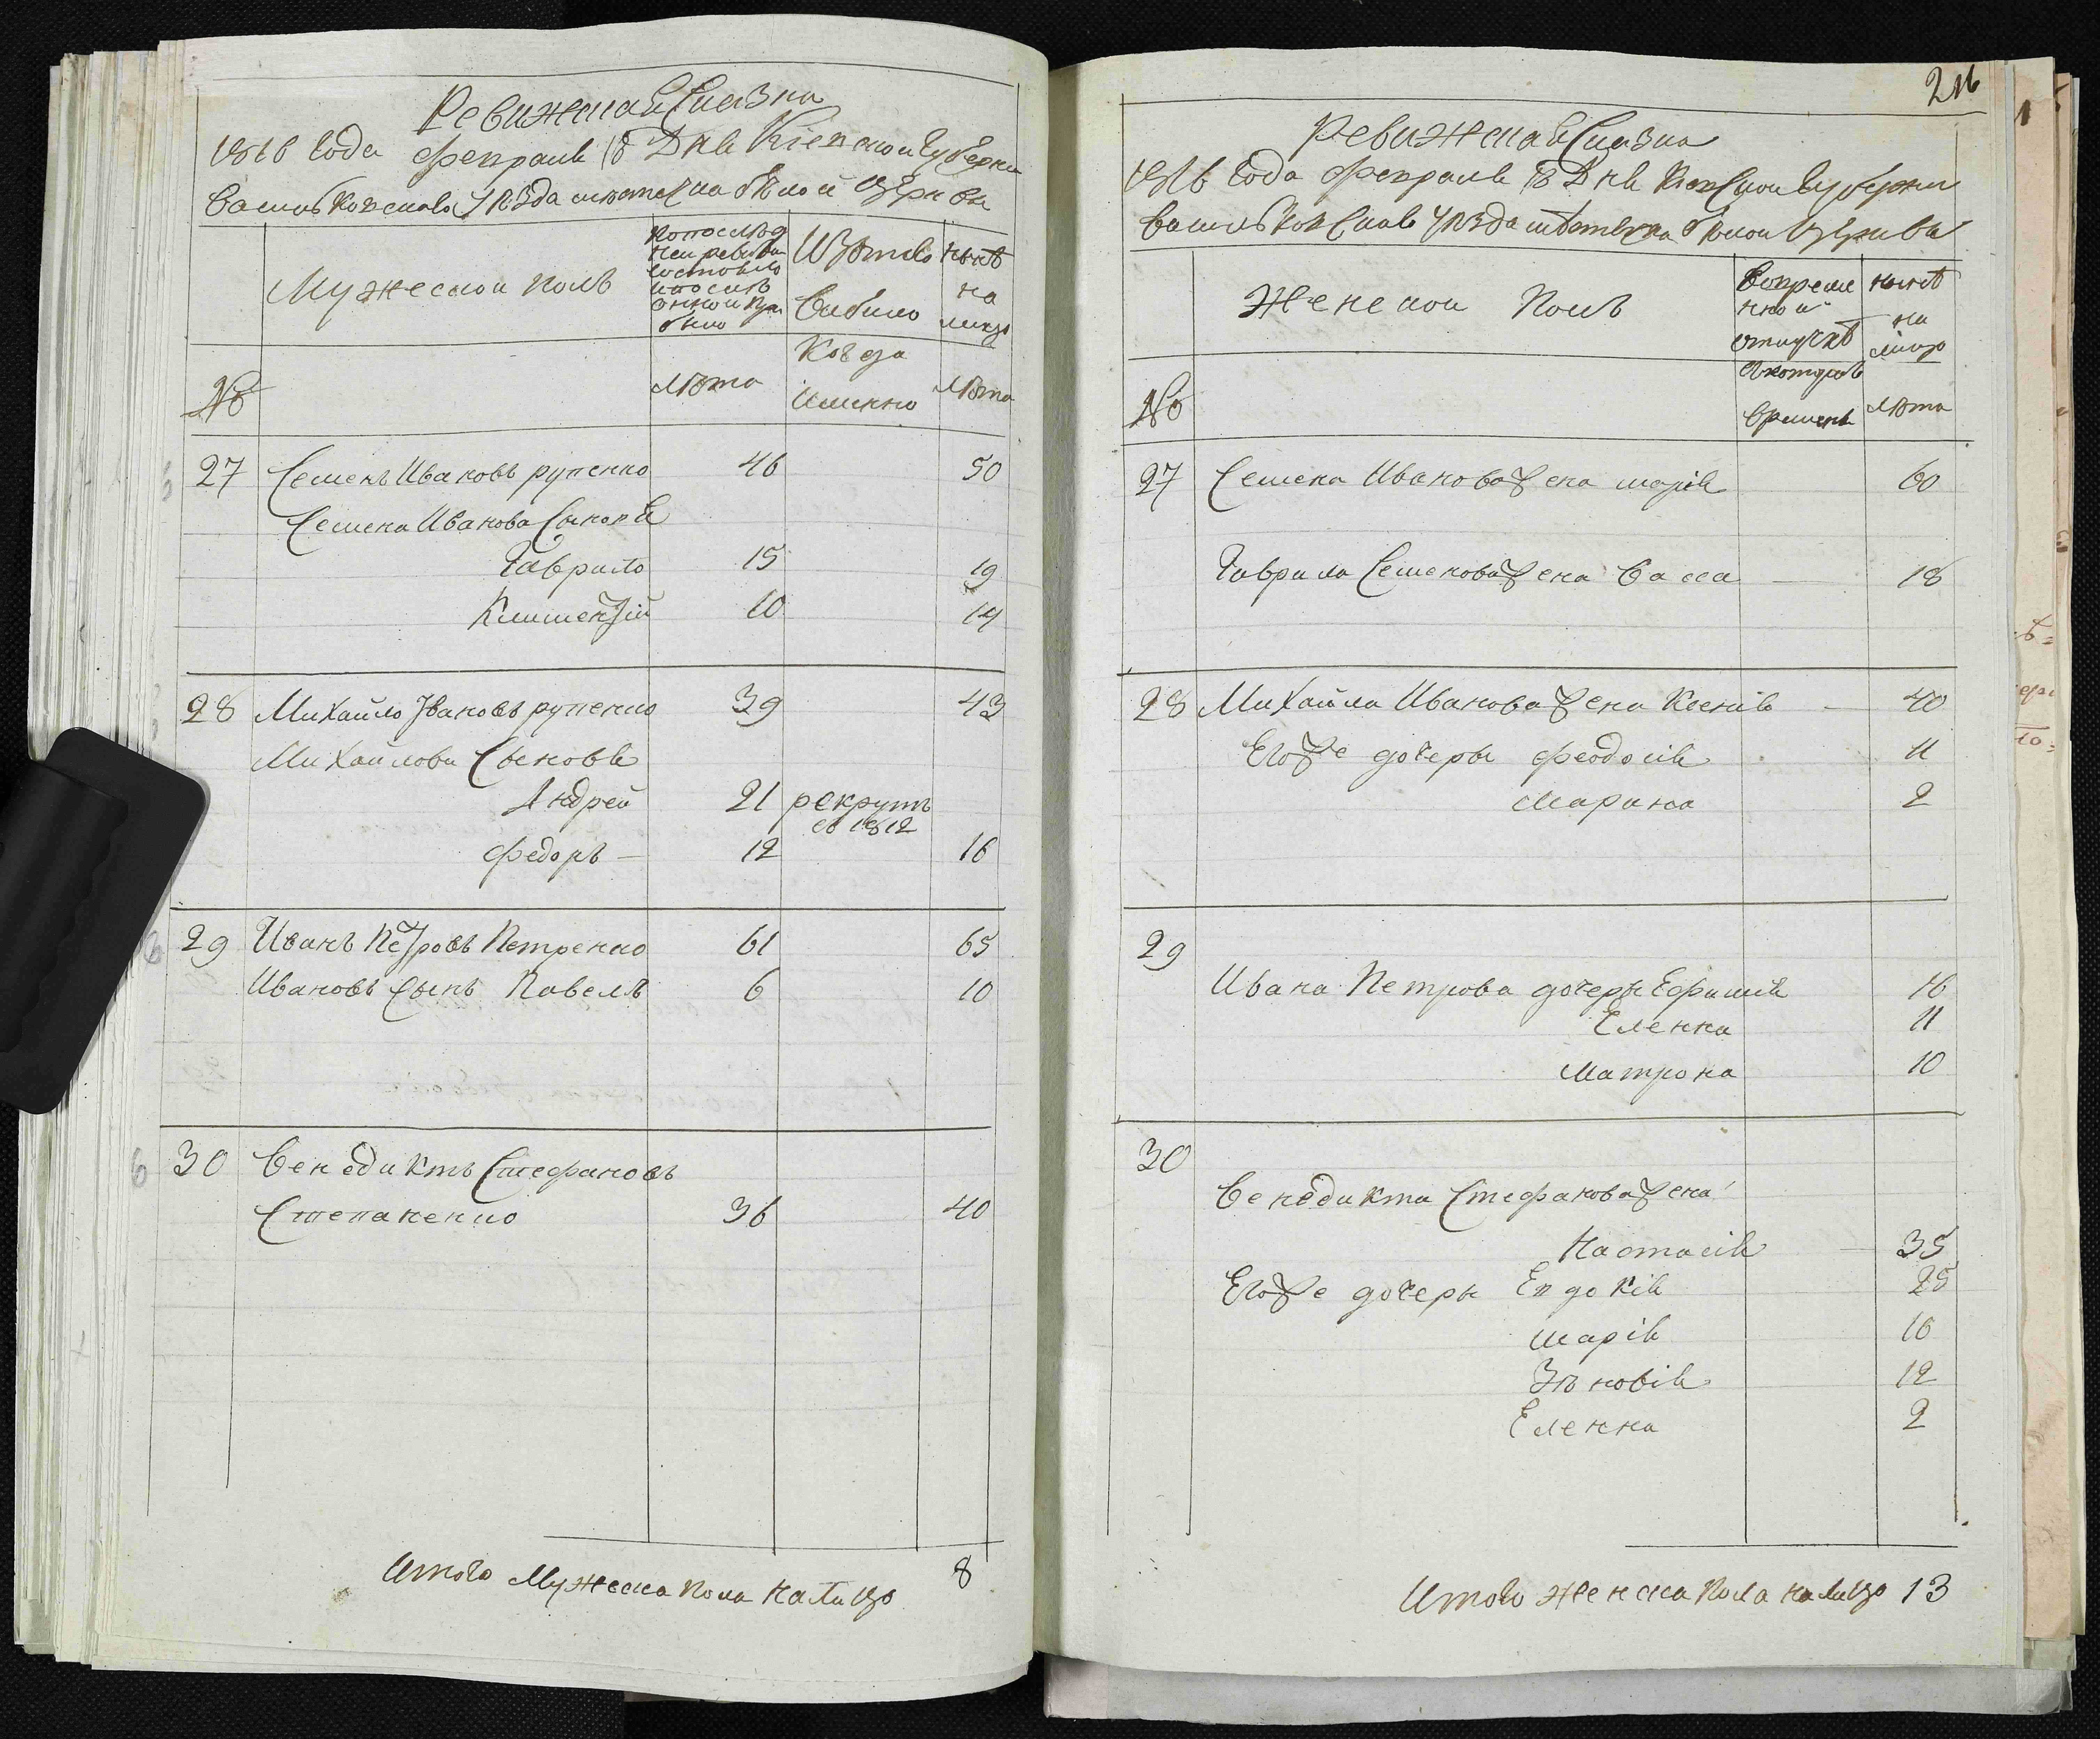 Ревижская Сказка
1816 Года Февраля 18 Дня Кіевской Губерніи
Васильковскаго Уѣзда мѣстечка бѣлой Церкви
Мужеской полъ
Изъ того
выбило
ныне
на
лицо
Когда
Именно
№
лѣта
лѣта
27 Семенъ Ивановъ рупенко 46 50
Семена Иванова Сыновя
Гаврило 15 19
Климентій 10 14
28 Михайло Ивановъ рупенко 39 43
Михайлови Сыновя
Андрей 21 рекрутъ
въ 1812
Федоръ 12 16
29 Иванъ Петровъ Петренко 61 65
Ивановъ Сынъ Павелъ 6 10
30 Венедиктъ Стефановъ
Степаненко 36 40
Итого Мужеска пола на лицо 8
216
Ревижская Сказка
1816 Года Февраля 18 Дня Кіевской Губерніи
Васильковскаго Уѣзда мѣстечка бѣлой Церкви
Женской Полъ
Вовреме
нной
отлучкѣ
ныне
на
лицо
№
времени
лѣта
27 Семена Иванова жена марія 60
Гаврила Семенова жена Васса 18
28 Михайла Иванова жена Ксенія 40
Его же дочеры Феодосія 11
Марина 2
29
Ивана Петрова дочеры Ефимія 16
Еленна 11
Матрона 10
30
Венедикта Стефанова жена
Настасія 35
Его же дочеры Евдокія 25
Марія 16
Зѣновія 12
Еленна 2
Итого женска пола на лицо 13